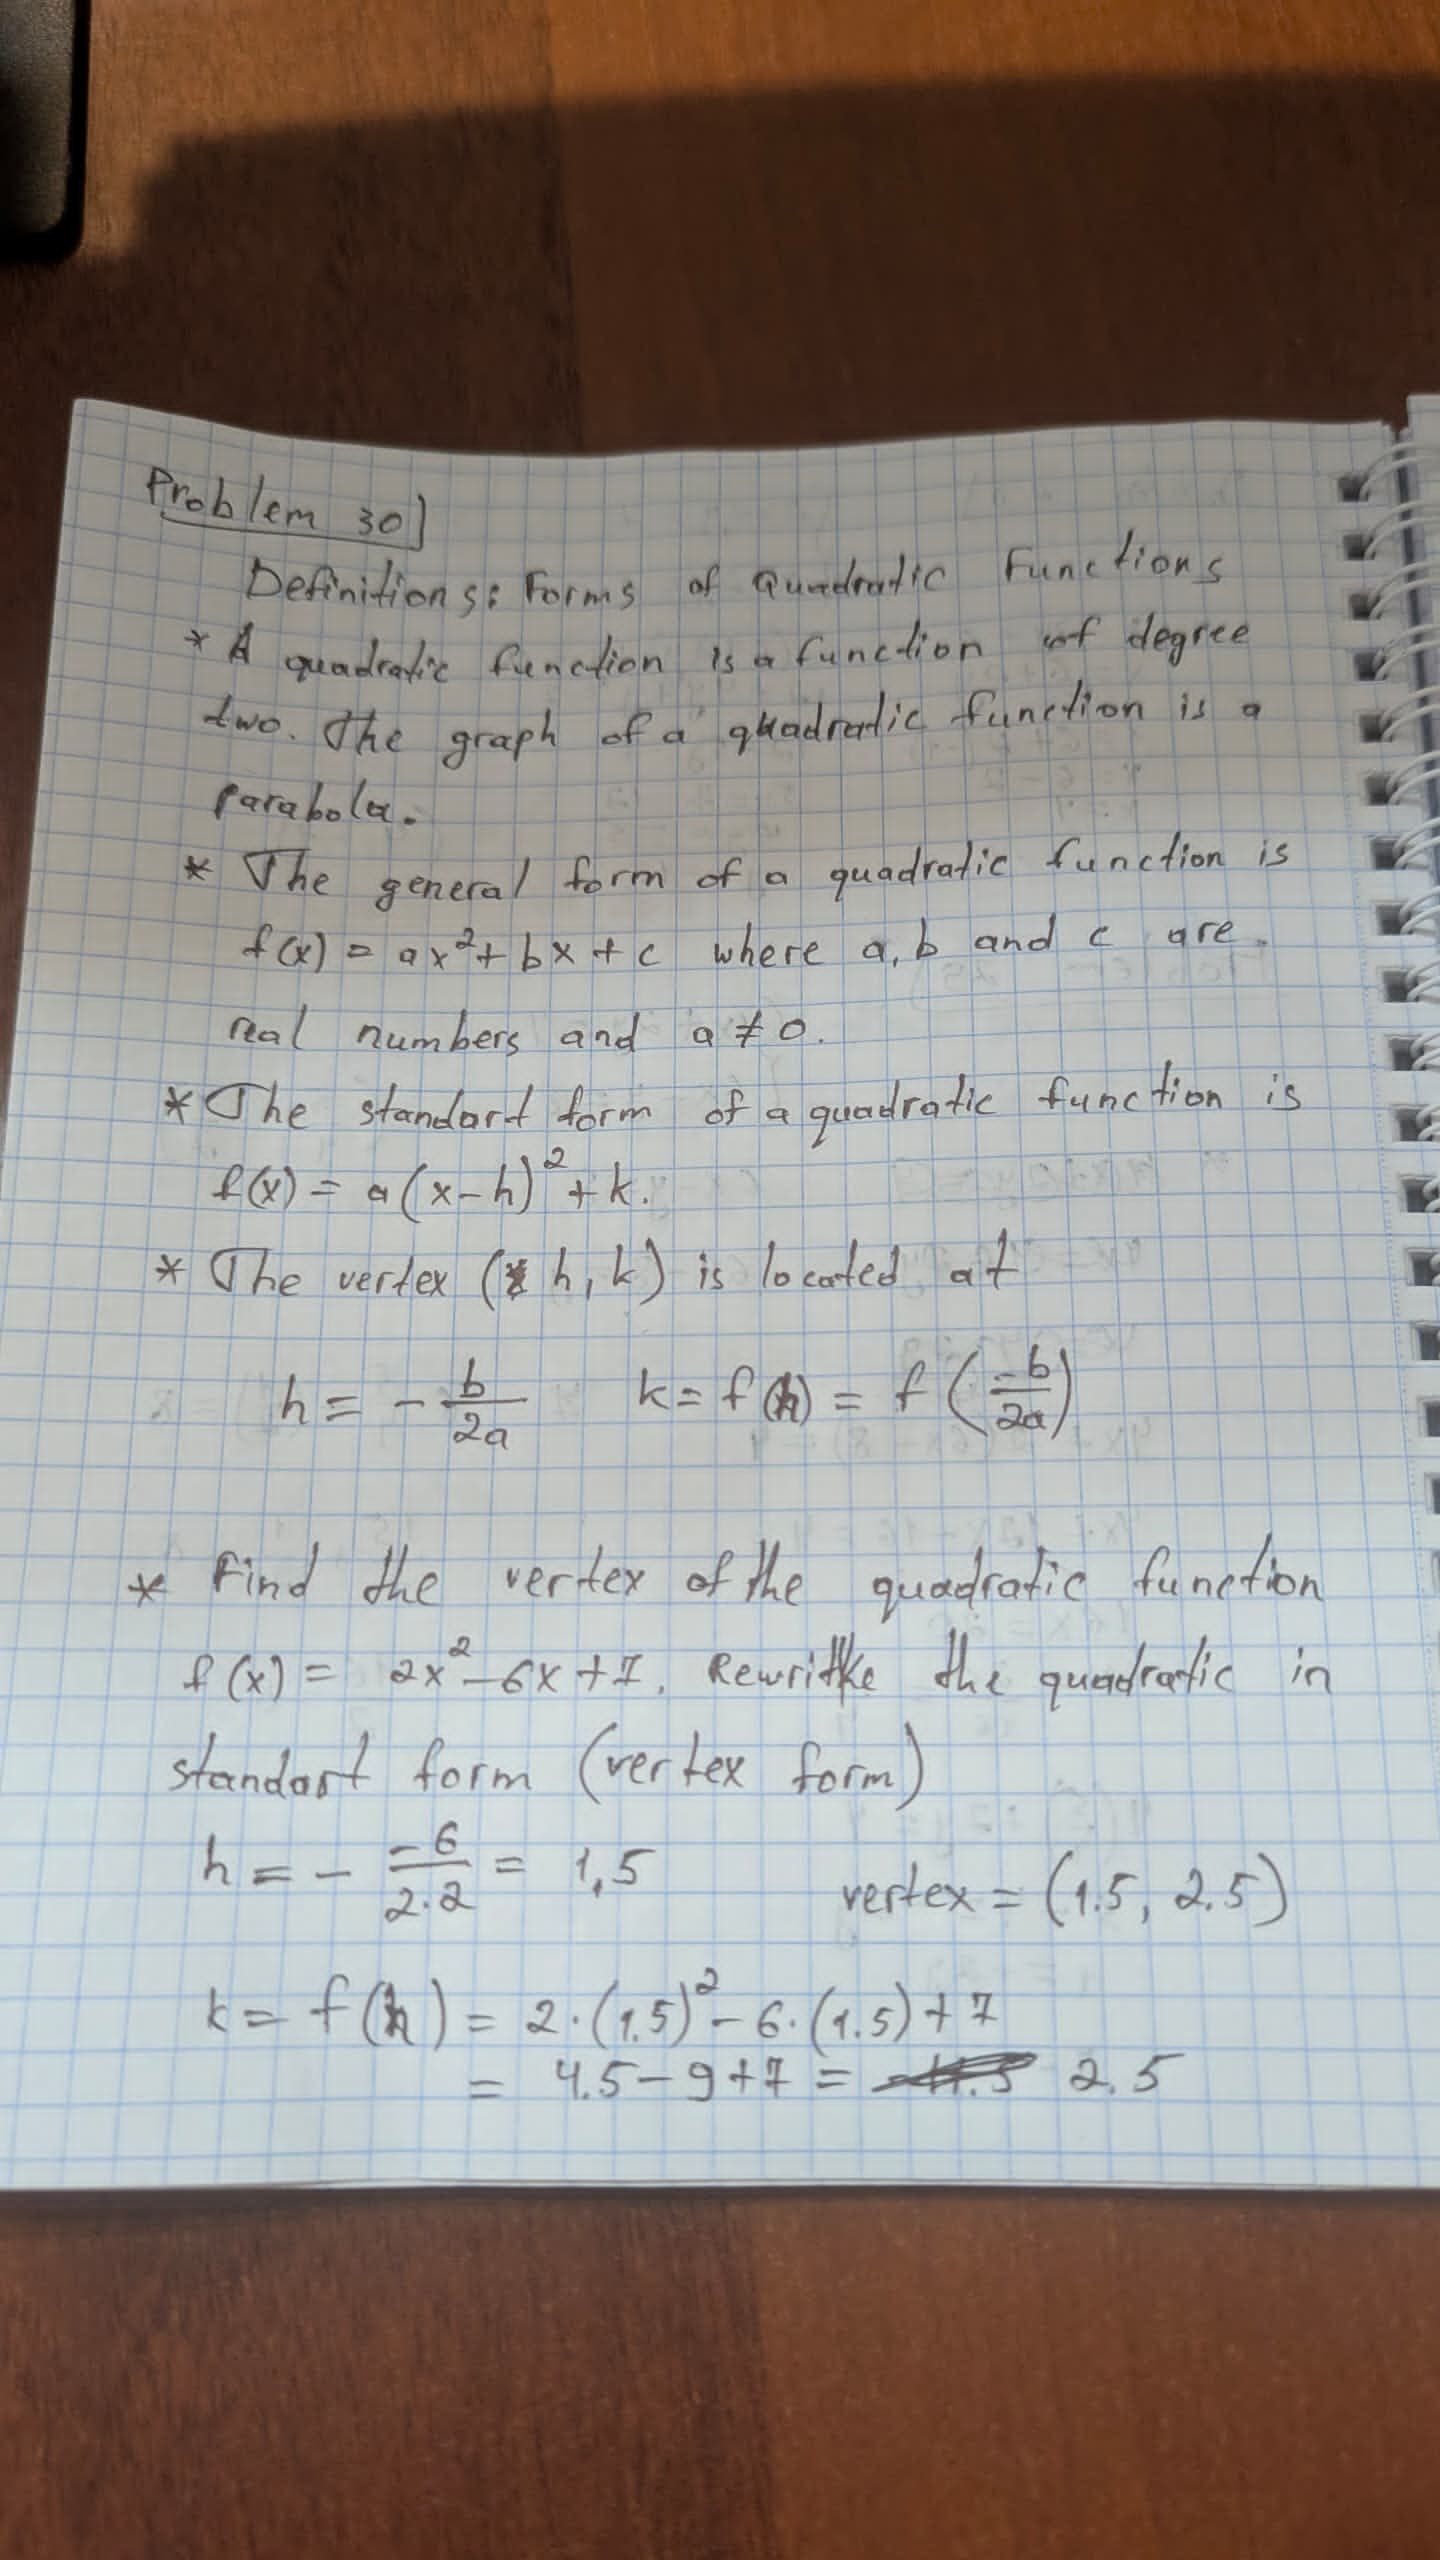 Problem 30
Definitions: Forms of Quadratic Functions
* A quadratic function is a function of degree
two. The graph of a quadratic function is a
parabola.
* The general form of a quadratic function is
f(x) = ax²+ bx + c where a, b and c are
real numbers and a ≠ 0.
* The standart form of a quadratic function is
f(x) = a(x-h)² + k.
* The vertex (h, k) is located at
h = - b/2a k = f(h) = f(-b/2a)
* Find the vertex of the quadratic function
f(x) = 2x²-6x+7. Rewrite the quadratic in
standart form (vertex form)
h = - -6/2·2 = 1,5 vertex = (1.5, 2.5)
k = f(h) = 2·(1.5)² - 6·(1.5) + 7
= 4.5 - 9 + 7 = 2.5